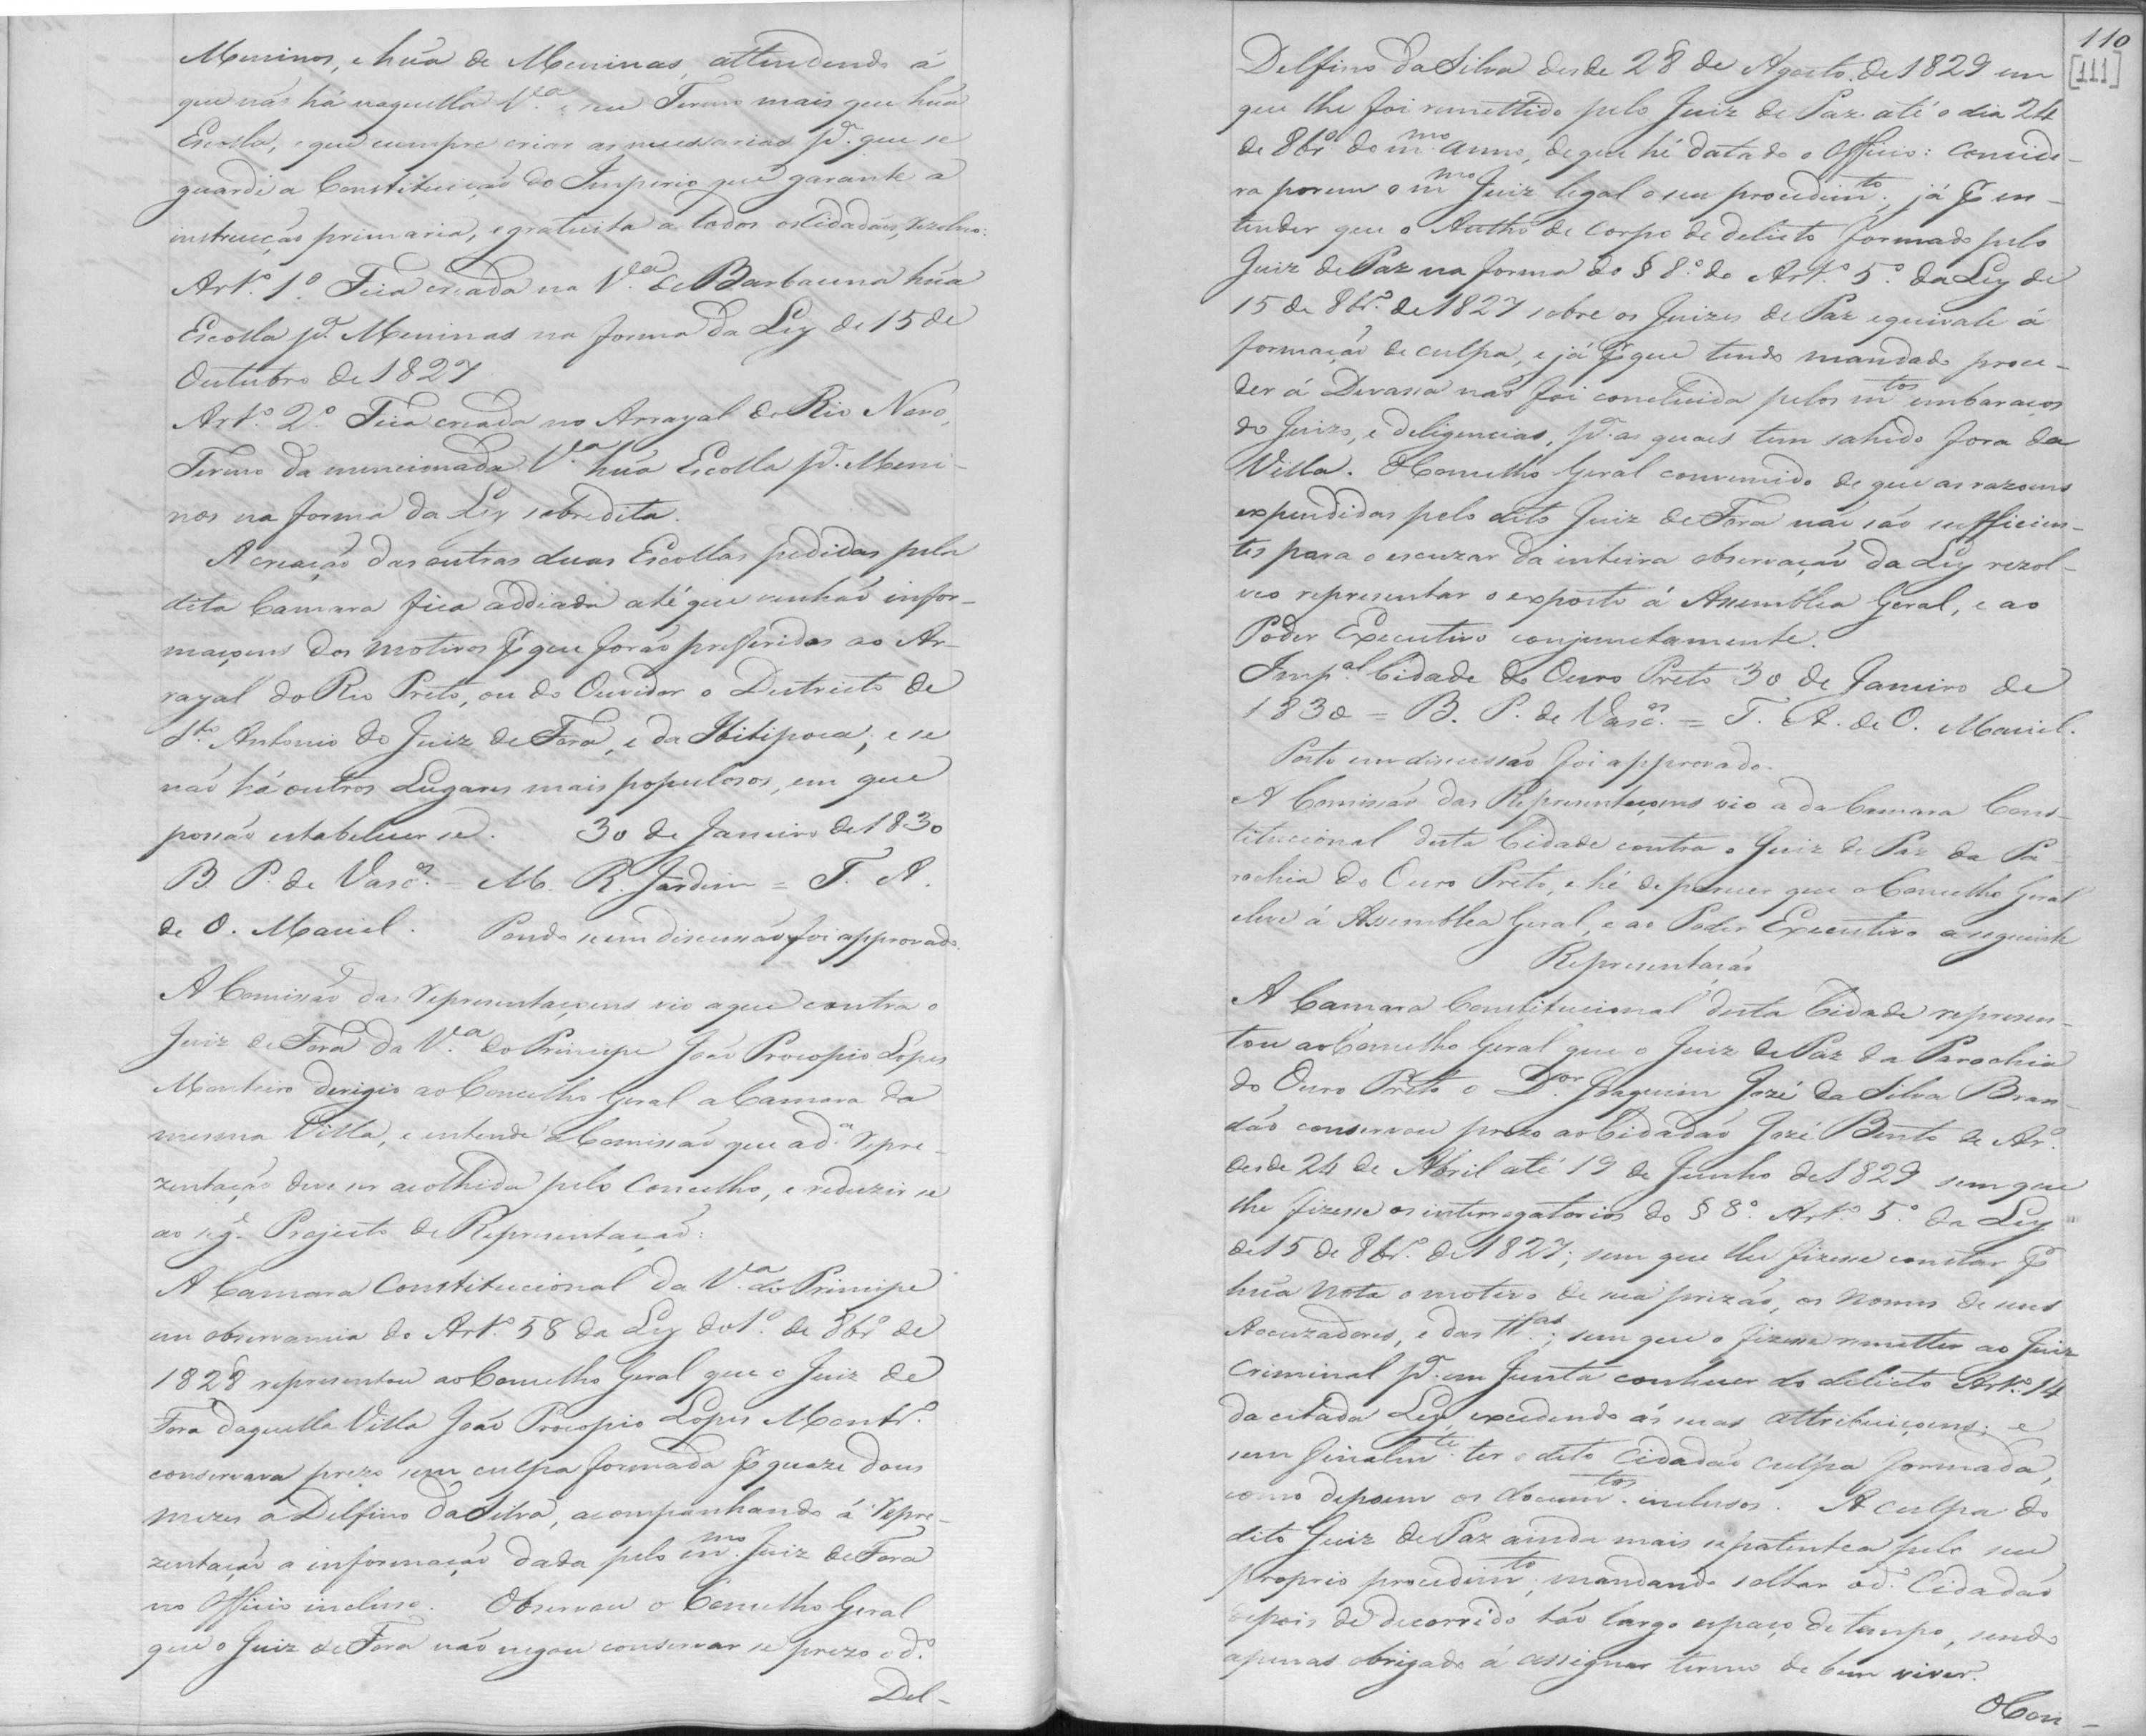 Meninos, e hũa de Meninas, attendendo á
que não há naquella V.ª e seu Termo mais que hũa
Escolla, e que cumpre criar as necessarias p.ª que se
guarde a Constituição do Imperio que garante a
instrucção primaria, e gratuita a todos os Cidadãos, rezolve:
Art.º 1.º Fica creada na V.ª de Barbacena hũa
Escolla p.ª Meninas na forma da Ley de 15 de
Outubro de 1827
Art.º 2.º Fica creada no Arrayal do Rio Novo,
Termo da mencionada V.ª hũa Escolla p.ª Meni-
nos na forma da Ley sobredita.
A creação das outras duas Escollas pedidas pela
dita Camara fica addiada até que venhão infor-
maçoens dos motivos pr que forão preferidos ao Ar-
rayal do Rio Preto, ou do Ouvidor o Districto de
S.to Antonio do Juiz de Fora, e da Ibitipoca; e se
não há outros Lugares mais populosos, em que
possão estabelecer se. 30 de Janeiro de 1830
B. P. de Vasc.os = M. R. Jardim = T. A.
de O. Maciel. Pondo se em discussão foi approvado.
A Comissão das representaçoens vio a que contra o
Juiz de Fora da V.ª do Principe João Procopio Lopes
Monteiro derigio ao Concelho Geral a Camara da
mesma Villa, e entende a Comissão que a d.ª repre-
zentação deve ser acolhida pelo Concelho, e reduzir se
ao seg.e Projecto de Representação:
A Camara Constitucional da V.ª do Principe
em observancia do Art.º 58 da Ley do 1.º de 8br.º de
1828 representou ao Concelho Geral que o Juiz de
Fora daquella Villa João Procopio Lopes Montr.º
conservara prezo sem culpa formada pr quaze dous
mezes a Delfino da Silva, acompanhando á repre-
zentação a informação dada pelo m.mo Juiz de Fora
no Officio incluso. Observou o Concelho Geral
que o Juiz de Fora não negou conservar se prezo o d.º
Del-
110
[111]
Delfino da Silva desde 28 de Agosto de 1829 em
que lhe foi remettido pelo Juiz de Paz até o dia 24
de 8br.º do m.mo anno, de que hé datado o Officio: conside-
ra porem o m.mo Juiz legal o seu procedim.to, já pr en-
tender que o Autho de Corpo de delicto formado pelo
Juiz de Paz na forma do § 8.º do Art.º 5.º da Ley de
15 de 8br.º de 1827 sobre os Juizes de Paz equivale á
formação de culpa, e já pr que tendo mandado proce-
der á Devassa não foi concluida pelos m.tos embaraços
do Juizo, e deligencias, p.ª as quaes tem sahido fora da
Villa. O Concelho Geral convencido de que as razoens
expendidas pelo dito Juiz de Fora não são sufficien-
tes para o escuzar da inteira observação da Ley rezol-
veo representar o exposto á Assemblea Geral, e ao
Poder Executivo conjunctamente.
Imp.al Cidade do Ouro Preto 30 de Janeiro de
1830 = B. P. de Vasc.os = T. A. de O. Maciel.
Posto em discussão foi approvado.
A Comissão das Representaçoens vio a da Camara Cons-
titucional desta Cidade contra o Juiz de Paz da Pa-
rochia do Ouro Preto, e hé de parecer que o Concelho Geral
eleve á Assemblea Geral, e ao Poder Executivo a seguinte
Representação
A Camara Constitucional desta Cidade represen-
tou ao Concelho Geral que o Juiz de Paz da Parochia
do Ouro Preto o D.or Joaquim Jozé da Silva Bran-
dão conservou prezo ao Cidadão Jozé Bento de Ar.º
desde 24 de Abril até 19 de Junho de 1829 sem que
lhe fizesse os interrogatorios do § 8.º Art.º 5.º da Ley
de 15 de 8br.º de 1827; sem que lhe fizesse constar pr
hũa Nota o motivo de sua prizão, os Nomes de seus
Accuzadores, e das tt.as; sem que o fizesse remetter ao Juiz
Criminal p.ª em Junta conhecer do delicto Art.º 14
da citada Ley, excedendo ás suas attribuiçoens; e
sem finalm.te ter o dito Cidadão culpa formada,
como depoem os docum.tos inclusos. A culpa do
dito Juiz de Paz ainda mais se patentea pelo seu
proprio procedim.to, mandando soltar o d.º Cidadão
depois de decorrido tão largo espaço de tempo, sendo
apenas obrigado á assignar termo de bem viver.
O Con-